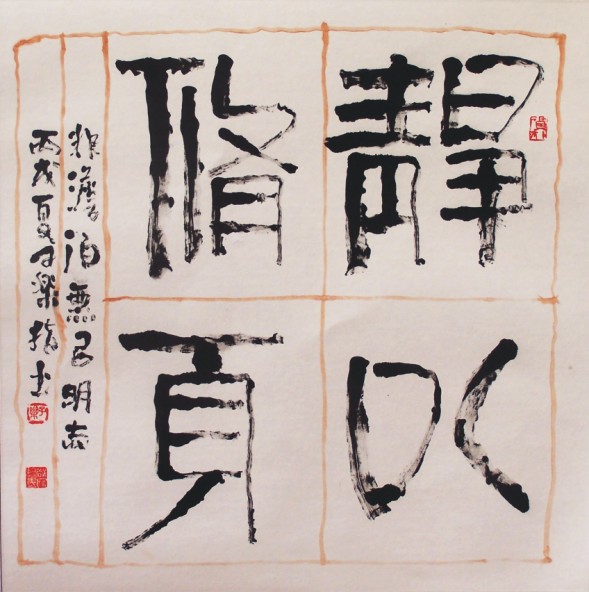 靜以
脩身
非澹泊無以明志
丙戌夏子樂指書